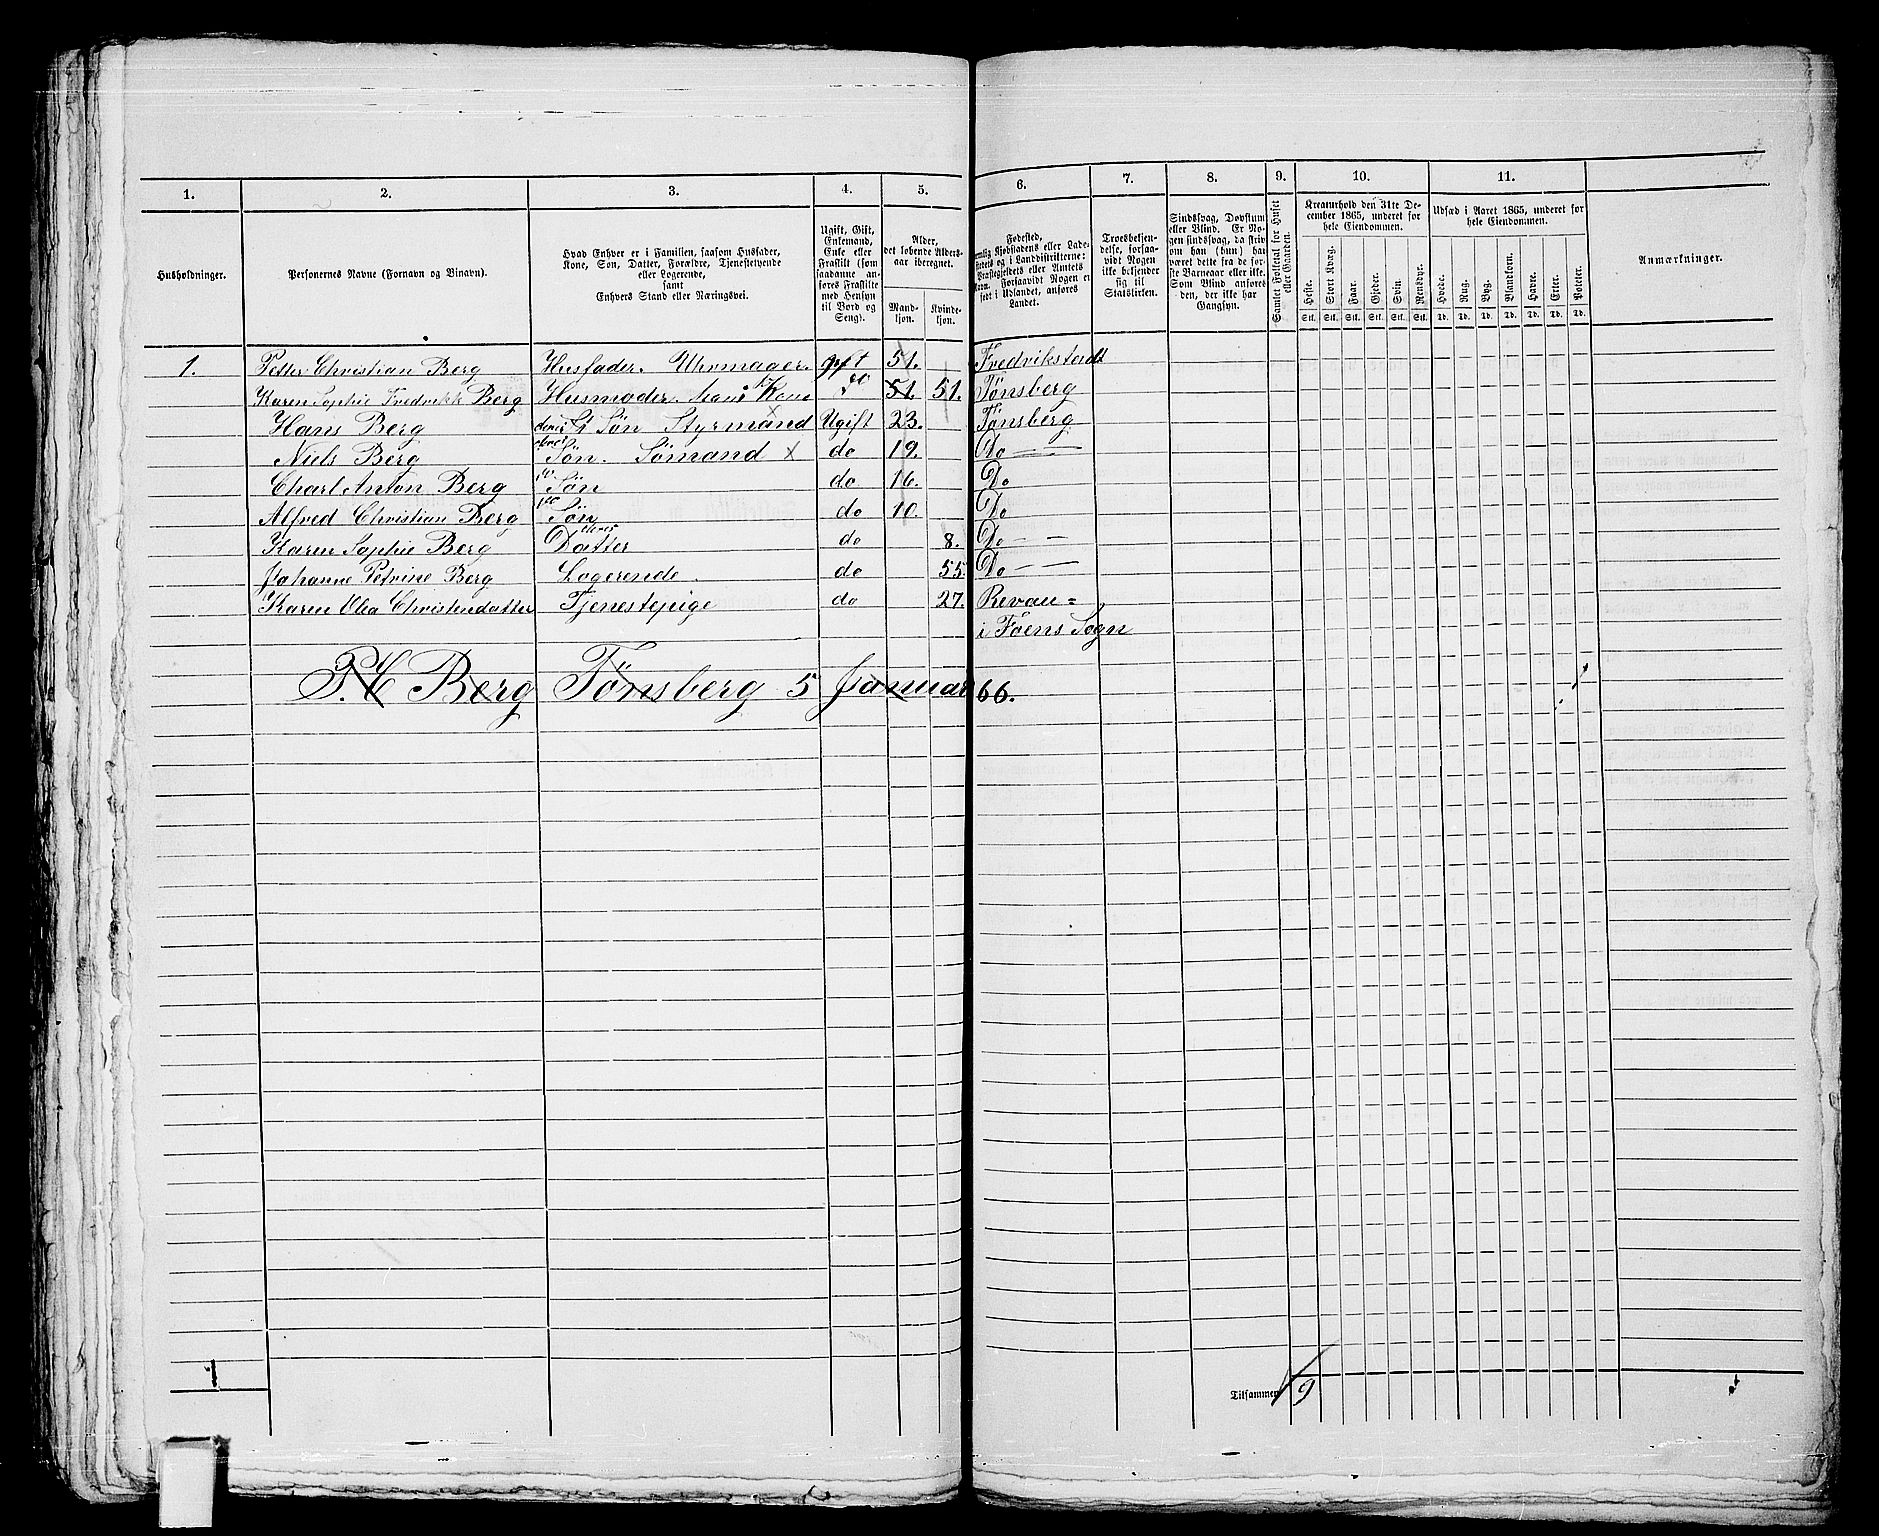 1. 2. 3. 4. 5. 6. 7. 8. 9. 10. 11.
Husholdninger.
Personernes Navne (Fornavn og Vinavn).
Hvad Enhver er i Familien, saasom Husfader,
Kone, Søn, Datter, Forældre, Tjenestyende
eller Logerende,
samt
Enhvers Stand eller Næringsvei.
Ugift, Gift,
Enkemand,
Enke eller
Fraskilt (som
saadanne an-
føres Fraskilte
med Hensyn
til Bord og
Seng).
Alder,
det løbende Alders-
aar iberegnet.
Mand-
kjøn.
Kvinde-
kjøn.
Fødested,
Landet.
Troesbekjen-
delse, forsaa-
vidt Nogen
ikke bekjender
sig til
Statskirken.
Sindssvag, Døvstum
eller Blind. Er No-
gen sindssvag, da skriv
om han (hun) har
været dette fra de før-
ste Barneaar eller ikke.
Som Blind anføres
den, der ikke har
Gangsyn.
Samlet Folketal for Huset
eller Gaarden.
Kreaturhold den 31te De-
cember 1865, underet for
hele Eiendommen.
Heste. Stort Kvæg. Faar. Gjeder. Svin. Rensdyr.
Stk. Stk. Stk. Stk. Stk. Stk.
Udsæd i Aaret 1865, underet for
hele Eiendommen.
Hvede. Rug. Byg. Blandkorn. Havre. Erter. Poteter.
Td. Td. Td. Td. Td. Td. Td.
Anmærkninger.
1. Petter Christian Berg Husfader. Uhrmager. gift 51. Fredrikstadt
Karen Sophie Fredrikk Berg Husmoder. Hans Kone do 51. 51. Tönsberg
Hans Berg deres Søn Styrmand Ugift 23. Tönsberg
Niels Berg deres Søn. Sømand x do 19. Do
Charl Anton Berg do Søn do 16. Do
Alfred Christian Berg do Søn do 10. Do
Karen Sophie Berg deres Datter do 8. Do
Johanne Petrine Berg Logerende. do 55 Do
Karen Olea Christendatter Tjenestepige do 27. Revau=
i Föens Sogn
P.C Berg Tønsberg 5 Januar 66.
1
Tilsammen 9